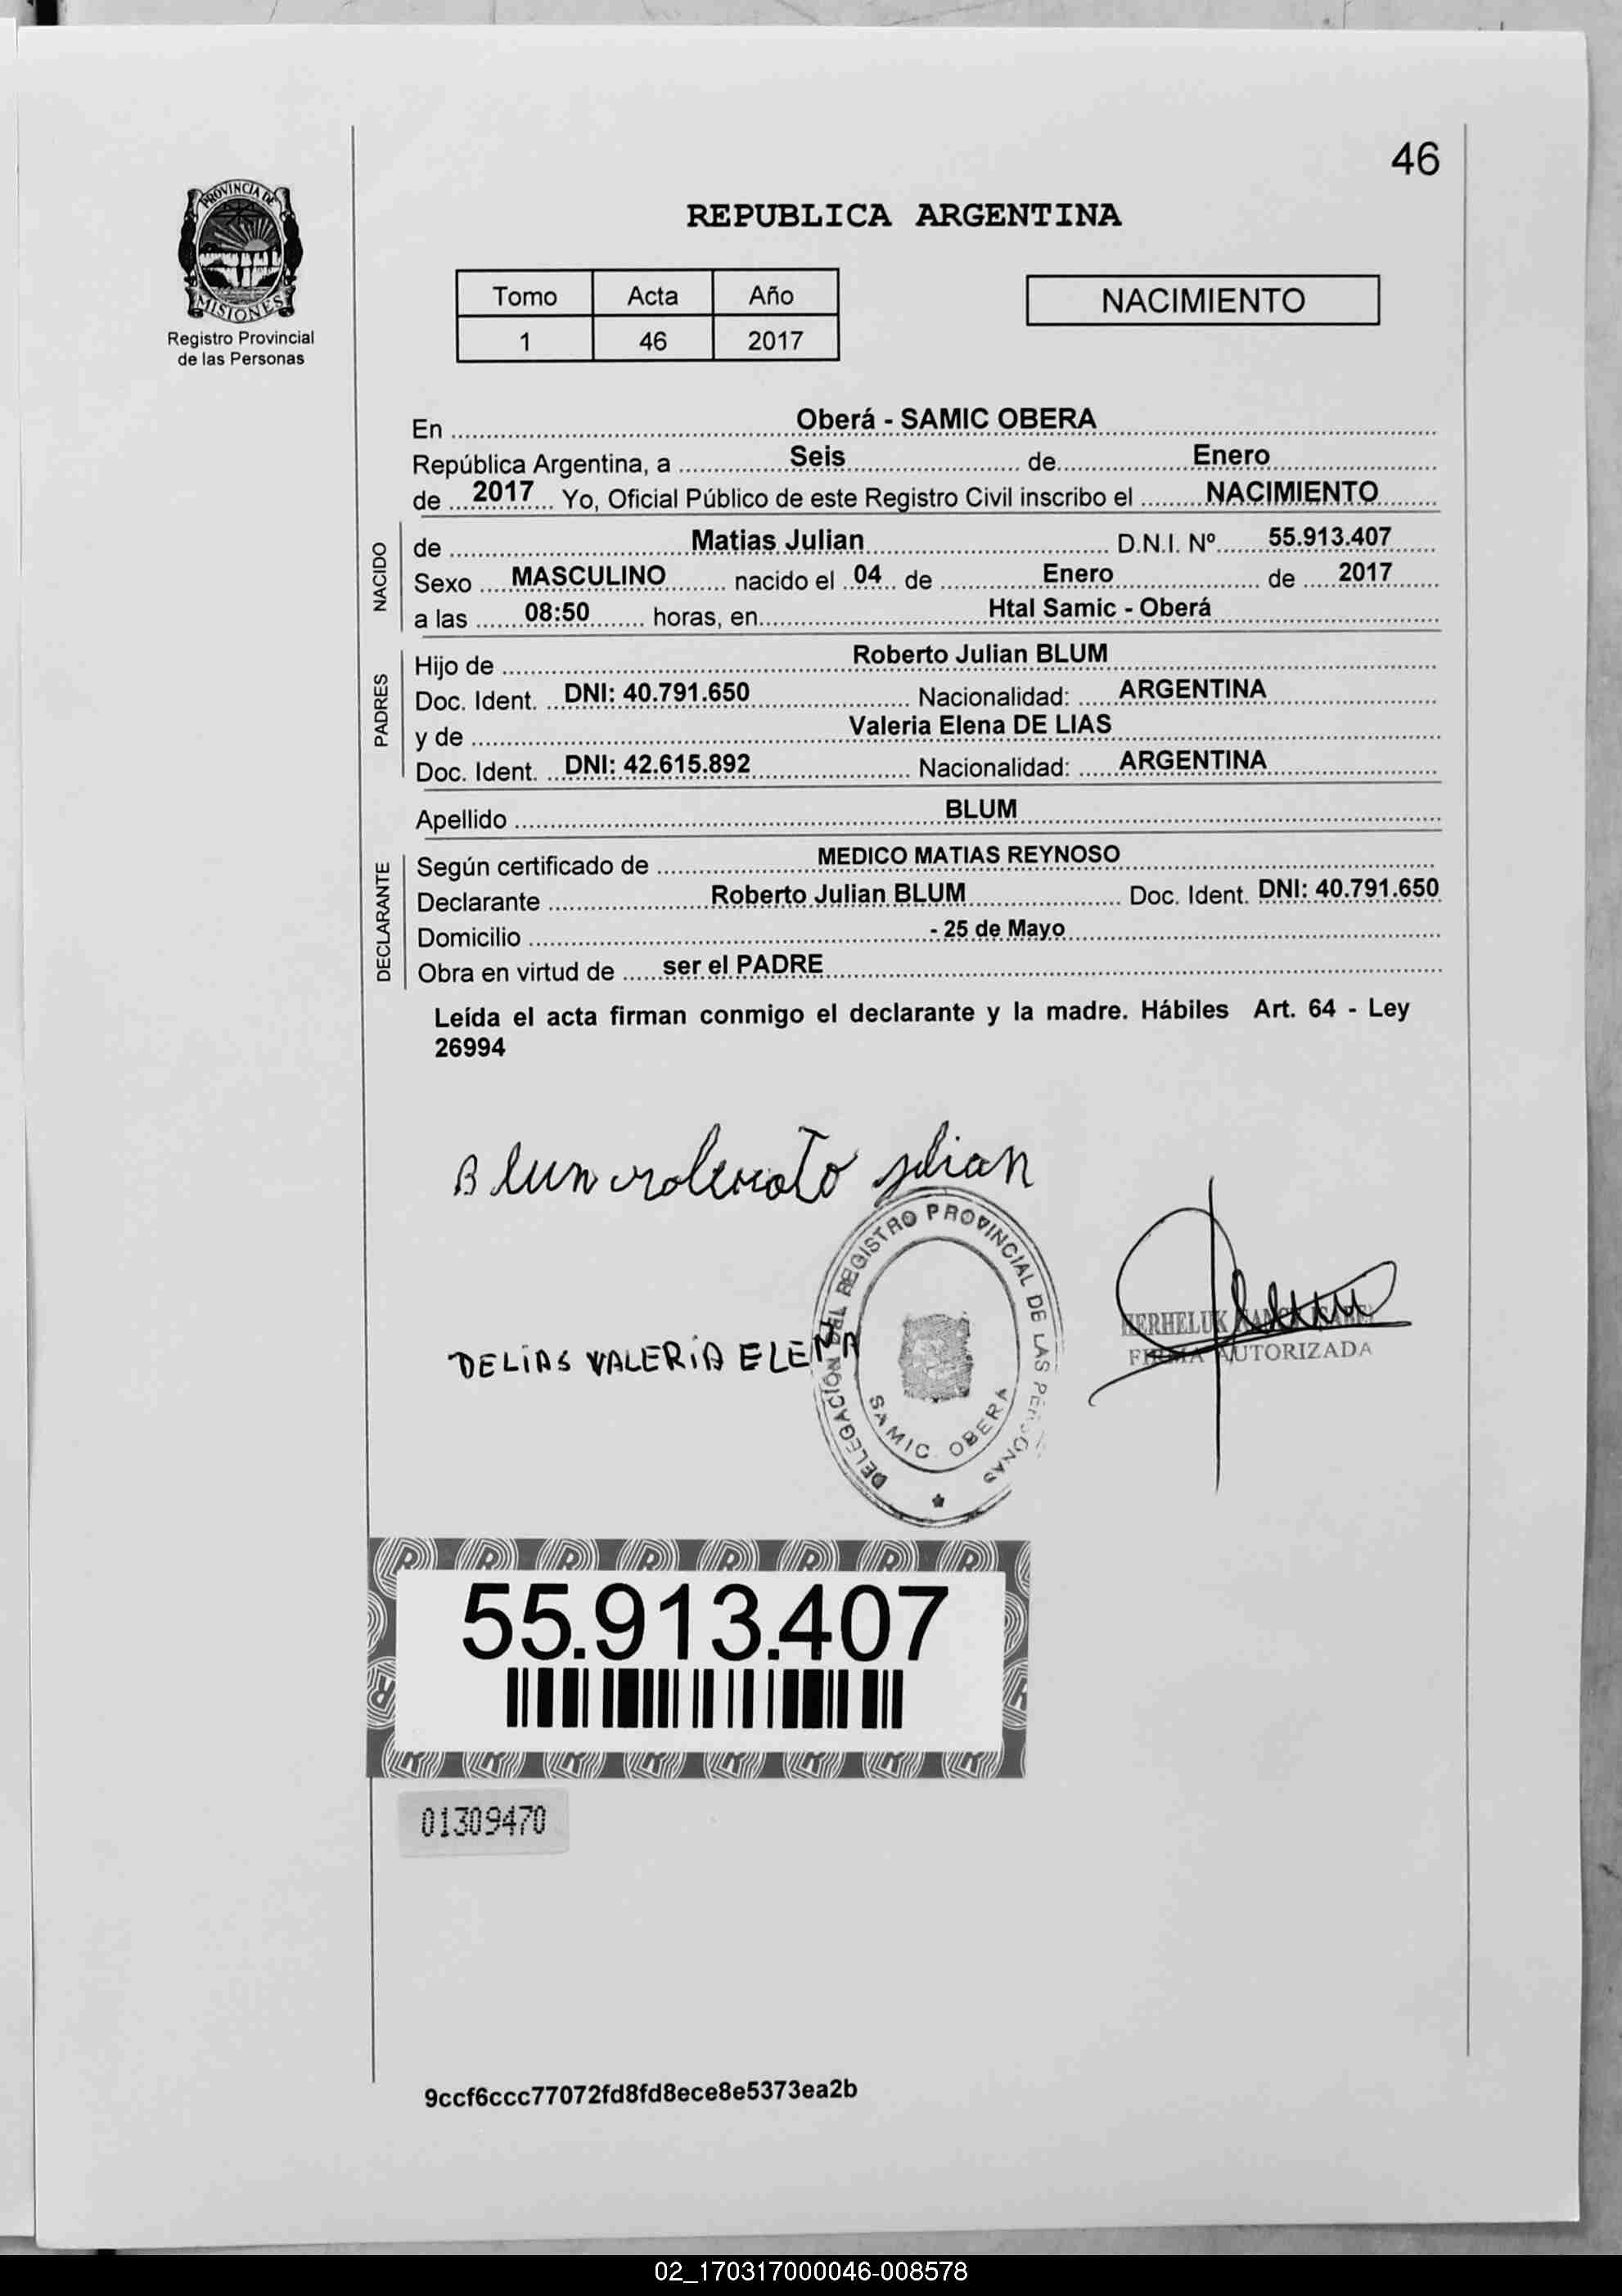 46
PROVINCIA DE
MISIONES
Registro Provincial
de las Personas
REPUBLICA ARGENTINA
Tomo Acta Año
1 46 2017
NACIMIENTO
En Oberá - SAMIC OBERA
República Argentina, a Seis de Enero
de 2017 Yo, Oficial Público de este Registro Civil inscribo el NACIMIENTO
NACIDO
de Matias Julian D.N.I. Nº 55.913.407
Sexo MASCULINO nacido el 04 de Enero de 2017
a las 08:50 horas, en Htal Samic - Oberá
PADRES
Hijo de Roberto Julian BLUM
Doc. Ident. DNI: 40.791.650 Nacionalidad: ARGENTINA
y de Valeria Elena DE LIAS
Doc. Ident. DNI: 42.615.892 Nacionalidad: ARGENTINA
Apellido BLUM
DECLARANTE
Según certificado de MEDICO MATIAS REYNOSO
Declarante Roberto Julian BLUM Doc. Ident. DNI: 40.791.650
Domicilio - 25 de Mayo
Obra en virtud de ser el PADRE
Leída el acta firman conmigo el declarante y la madre. Hábiles Art. 64 - Ley
26994
DELIAS VALERIA ELENA
DELEGACIÓN DEL REGISTRO PROVINCIAL DE LAS PERSONAS
SAMIC OBERA
FIRMA AUTORIZADA
55.913.407
01309470
9ccf6ccc77072fd8fd8ece8e5373ea2b
02_170317000046-008578